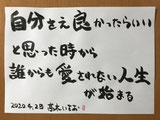 自分さえ良かったらいい
と思った時から
誰からも愛されない人生
が始まる
2020.4.28